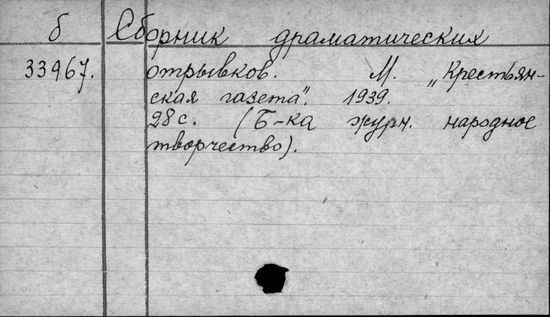 б Сборник драматических
33967. отрывков. М. „Крестьян-
ская газета". 1939.
28 с. (Б-ка журн. народное
творчество).